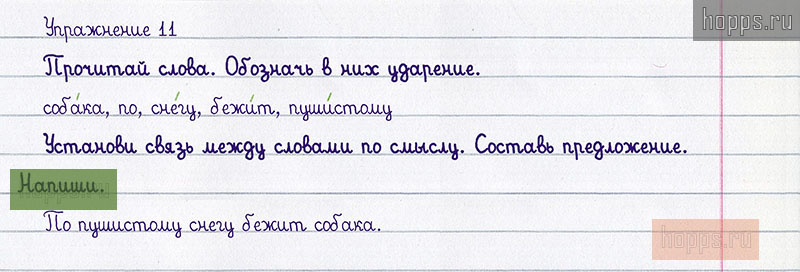 hopps.ru
Упражнение 11
Прочитай слова. Обозначь в них ударение.
соба́ка, по, сне́гу, бежи́т, пуши́стому
Установи связь между словами по смыслу. Составь предложение.
Напиши.
По пушистому снегу бежит собака.
hopps.ru